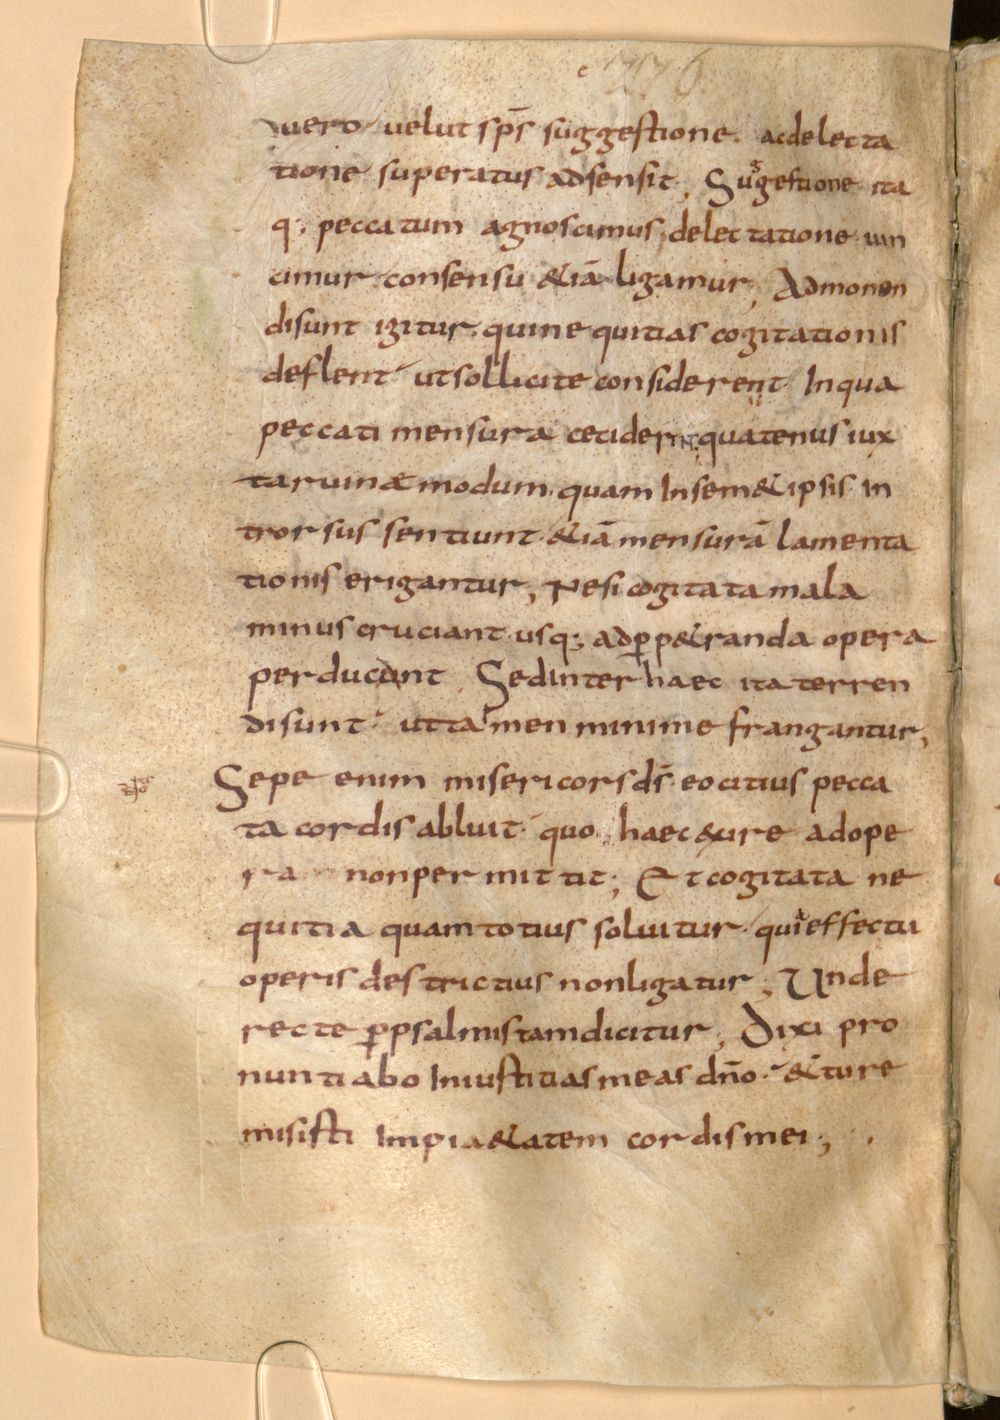 vero velut sp̄s suggestione. ac delecta
tione superatus adsensit; Suggestione ita
q; peccatum agnoscimus, delectatione uin
cimur consensu &iā ligamur; Admonen
di sunt igitur. qui nequitias cogitationis
deflent ut sollicite considerent In qua
peccati mensura cecidernt. quatenus iux
ta ruinæ modum. quam In sem&ipsis in
trorsus sentiunt &iā mensurā lamenta
tionis erigantur; Ne si cogitata mala
minus cruciant usq; ad ꝑp&randa opera
perducunt Sed Inter haec ita terren
di sunt ut tamen minime frangantur;
Sepe enim misericors ds̄ eo citius pecca
ta cordis abluit quo haec exire ad ope
ra non permittit; Et cogitata ne
quitia quamtotius soluitur quia effectu
operis destrictius non ligatur; Unde
recte ꝑ psalmistam dicitur; Dixi pro
nuntiabo Iniustitias meas dn̄o &tu re
misisti Impi&atem cordis mei;